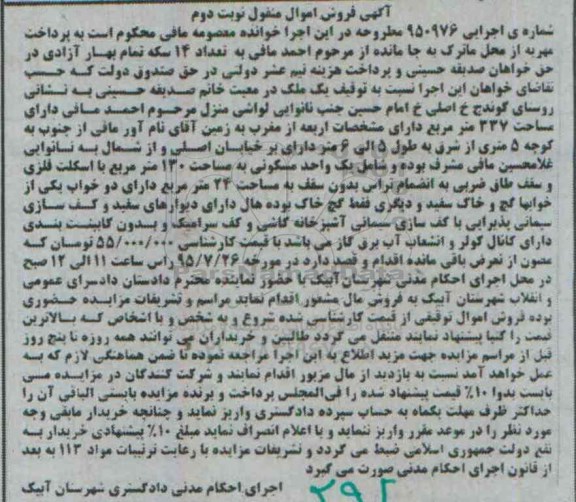 آگهی فروش اموال منقول نوبت دوم
شماره ی اجرایی ۹۵۰۹۷۶ مطروحه در این اجرا خوانده معصومه مافی محکوم است به پرداخت
مهریه از محل ماترک به جا مانده از مرحوم احمد مافی به تعداد ۱۴ سکه تمام بهار آزادی در
حق خواهان صدیقه حسینی و پرداخت هزینه نیم عشر دولتی در حق صندوق دولت که حسب
تقاضای خواهان این اجرا نسبت به توقیف یک ملک در معیت خانم صدیقه حسینی به نشانی
روستای گوندج خ اصلی خ امام حسین جنب نانوایی لواشی منزل مرحوم احمد مافی دارای
مساحت ۳۳۷ متر مربع دارای مشخصات اربعه از مغرب به زمین آقای نام آور مافی از جنوب به
کوچه ۵ متری از شرق به طول ۵ الی ۶ متر دارای بر خیابان اصلی و از شمال به نانوایی
غلامحسین مافی مشرف بوده و شامل یک واحد مسکونی به مساحت ۱۳۰ متر مربع با اسکلت فلزی
و سقف طاق ضربی به انضمام تراس بدون سقف به مساحت ۲۴ متر مربع دارای دو خواب یکی از
خوابها گچ و خاک سفید و دیگری فقط گچ خاک بوده هال دارای دیوارهای سفید و کف سازی
سیمانی پذیرایی با کف سازی سیمانی آشپزخانه کاشی و کف سرامیک و بدون کابینت بندی
دارای کانال کولر و انشعاب آب برق گاز می باشد با قیمت کارشناسی ۵۵/۰۰۰/۰۰۰ تومان که
مصون از تعرض باقی مانده اقدام و قصد دارد در مورخه ۹۵/۷/۲۶ راس ساعت ۱۱ الی ۱۲ صبح
در محل اجرای احکام مدنی شهرستان آبیک با حضور نماینده محترم دادستان دادسرای عمومی
و انقلاب شهرستان آبیک به فروش مال مشعور اقدام نماید مراسم و تشریفات مزایده حضوری
بوده فروش اموال توقیفی از قیمت کارشناسی شده شروع و به شخص و یا اشخاص که بالاترین
قیمت را کتبا پیشنهاد نمایند منتقل می گردد طالبین و خریداران می توانند همه روزه تا پنج روز
قبل از مراسم مزایده جهت مزید اطلاع به این اجرا مراجعه نموده تا ضمن هماهنگی لازم که به
عمل خواهد آمد نسبت به بازدید از مال مزبور اقدام نمایند و شرکت کنندگان در مزایده می
بایست بدوا ۱۰٪ قیمت پیشنهاد شده را فی المجلس پرداخت و برنده مزایده بایستی الباقی آن را
حداکثر ظرف مهلت یکماه به حساب سپرده دادگستری واریز نماید و چنانچه خریدار مابقی وجه
مورد نظر را در موعد مقرر واریز ننماید و یا اعلام انصراف نماید مبلغ ۱۰٪ پیشنهادی خریدار به
نفع دولت جمهوری اسلامی ضبط می گردد و تشریفات مزایده با رعایت ترتیبات مواد ۱۱۳ به بعد
از قانون اجرای احکام مدنی صورت می گیرد
اجرای احکام مدنی دادگستری شهرستان آبیک